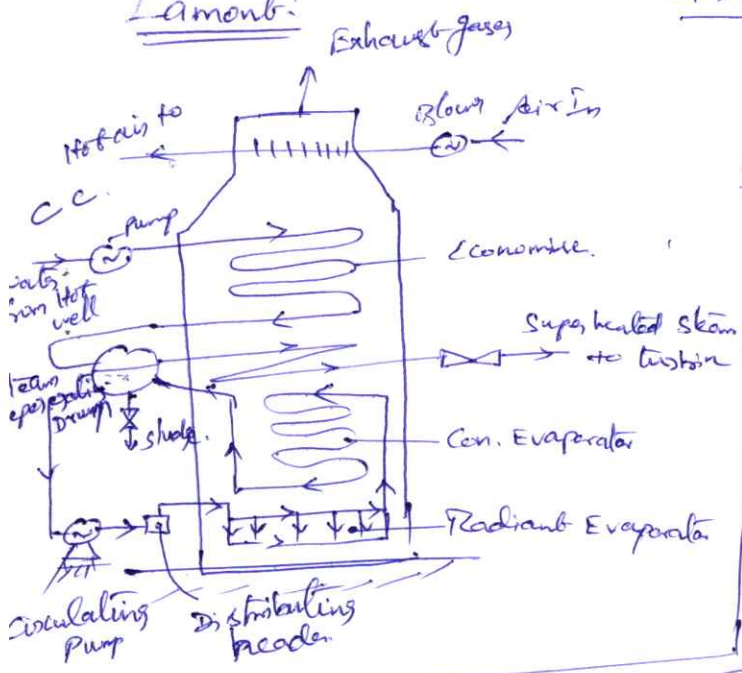 Lamont:
Exhaust gases
Blower Air In
Hot air to
C C.
pump
Economise.
water
from Hot
well
Superheated Steam
to turbin
Steam
Seperating
Drum
sludge.
Con. Evaporator
Radiant Evaporator
Circulating
Pump
Distributing
header